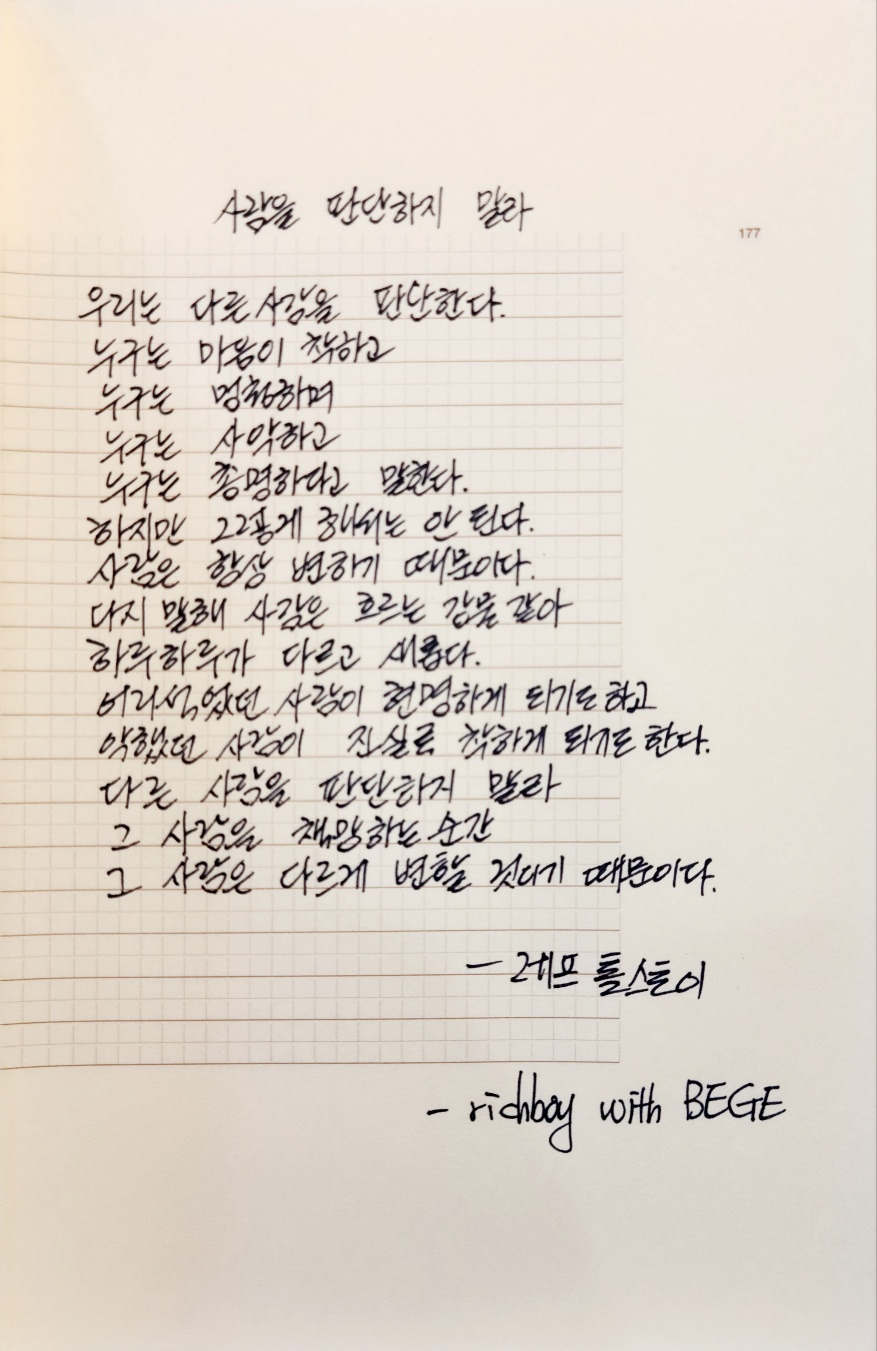 사람을 판단하지 말라
177
우리는 다른 사람을 판단한다.
누구는 마음이 착하고
누구는 멍청하며
누구는 사악하고
누구는 총명하다고 말한다.
하지만 그렇게 해서는 안 된다.
사람은 항상 변하기 때문이다.
다시 말해 사람은 흐르는 강물 같아
하루하루가 다르고 새롭다.
어리석었던 사람이 현명하게 되기도 하고
악했던 사람이 진실로 착하게 되기도 한다.
다른 사람을 판단하지 말라
그 사람을 책망하는 순간
그 사람은 다르게 변할 것이기 때문이다.
- 레프 톨스토이
- richboy with BEGE